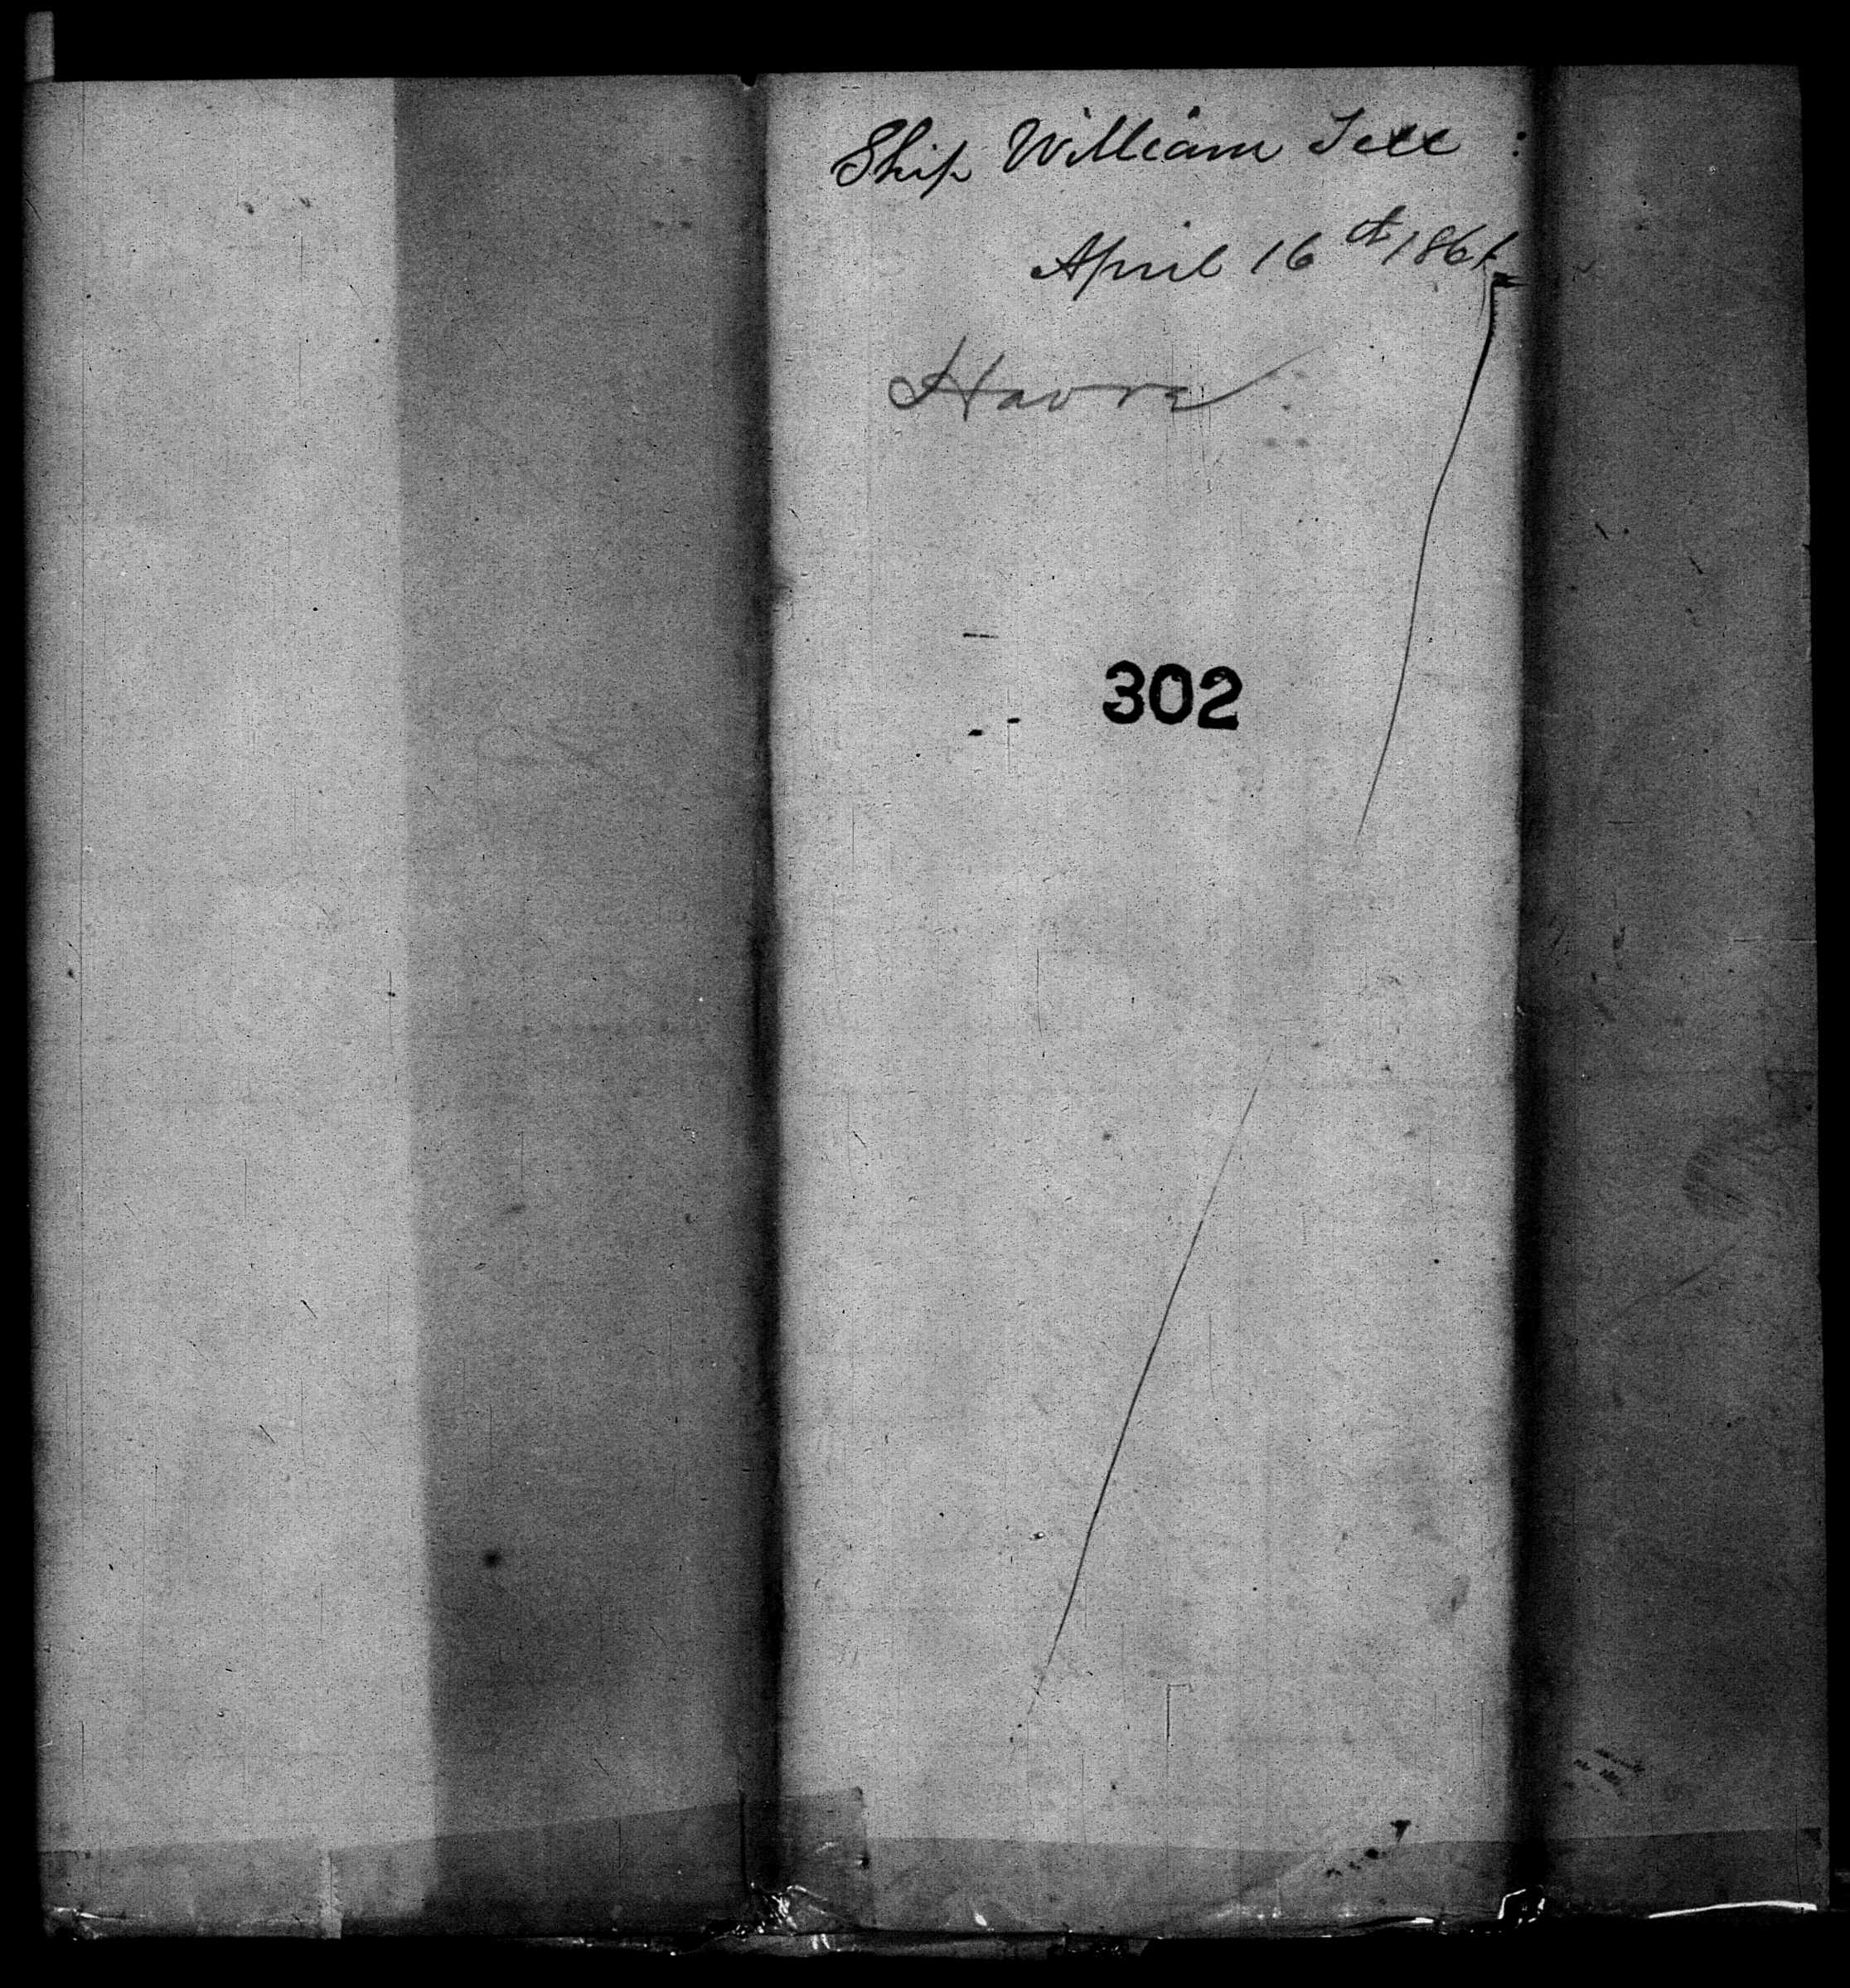 Ship William Tell :
April 16th 1861
Havre
302